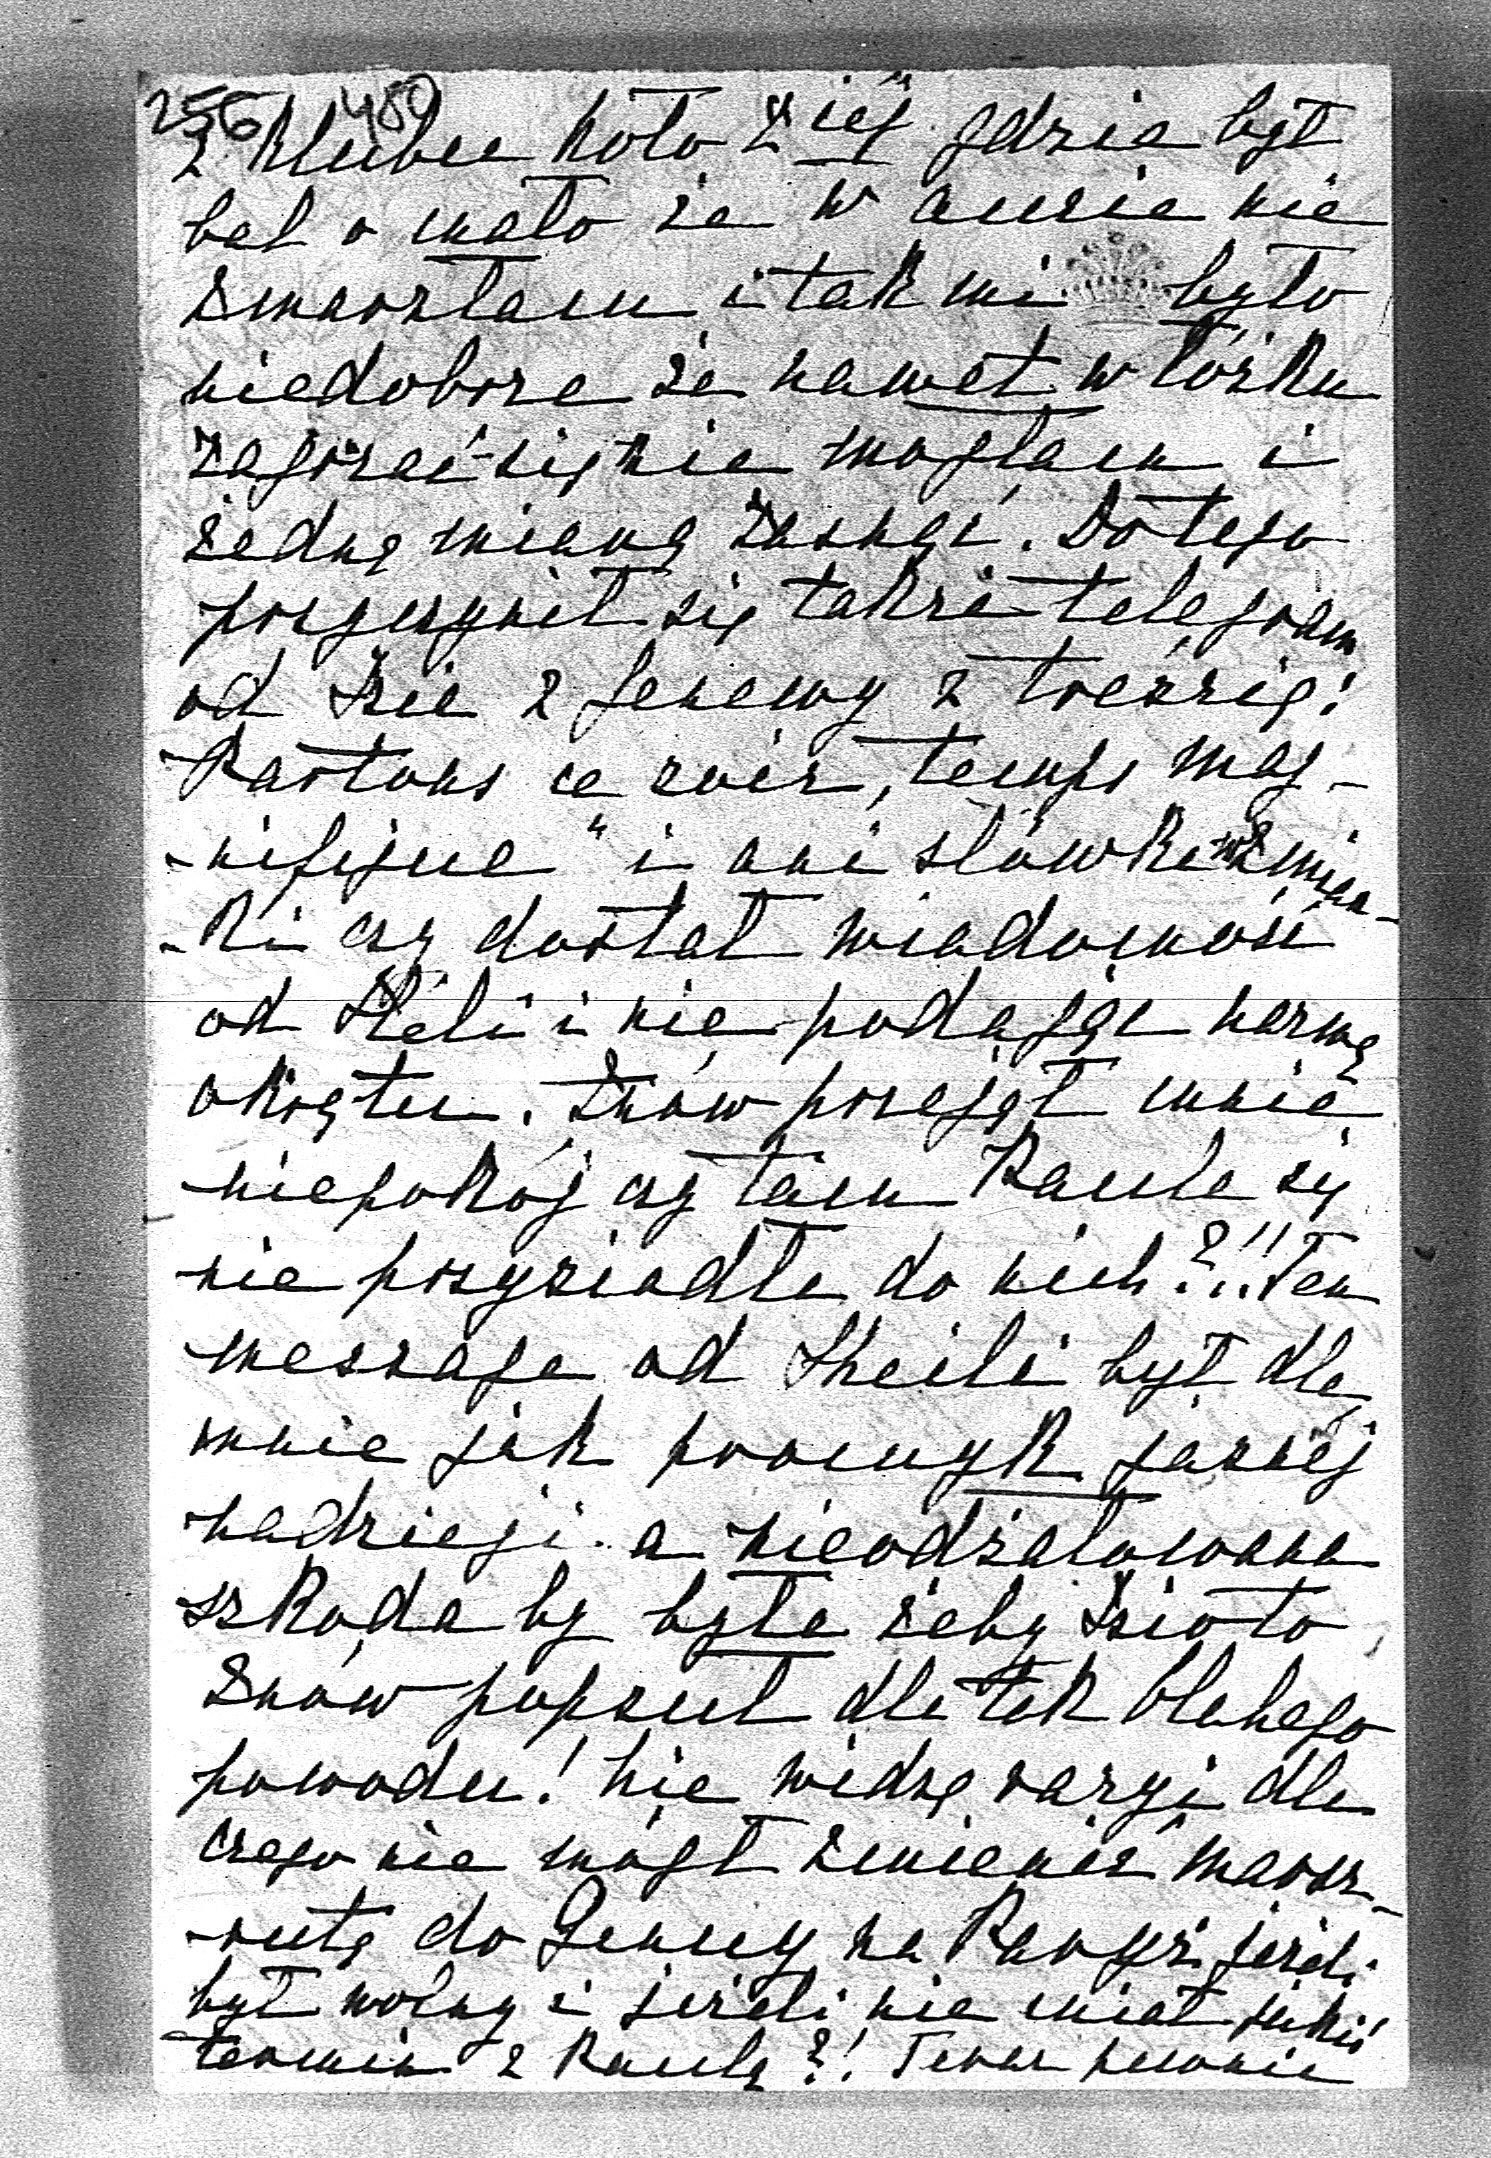 256 480
z klubu koło 2iej gdzie był
bal o mało że w aucie nie
zmarzłam i tak mi było
niedobrze że nawet w łóżku
zagrzać się nie mogłam i
żadną miarą zasnąć. Do tego
przyczynił się także telegram
od Izie z Genewy z treścią:
"Partons ce soir, temps mag-
-nifique" i ani słówka wzmian-
-ki czy dostał wiadomość
od Sheili i nie podając nazwę
okrętu. Znów przejął mnie
niepokój czy tam Raula się
nie przysiadła do nich?!! Ten
message od Sheili był dla
mnie jak promyk jasnej
nadzieji a nieodżałowana
szkoda by była żeby Izio to
znów popsuł dla tak błahego
powodu! Nie widzę racyi dla
czego nie mógł zmienić marsz-
-rutę do Genuy na Paryż jeżeli
był wolny i jeżeli nie miał jakiś
termin z Raulą?! Teraz pewnie